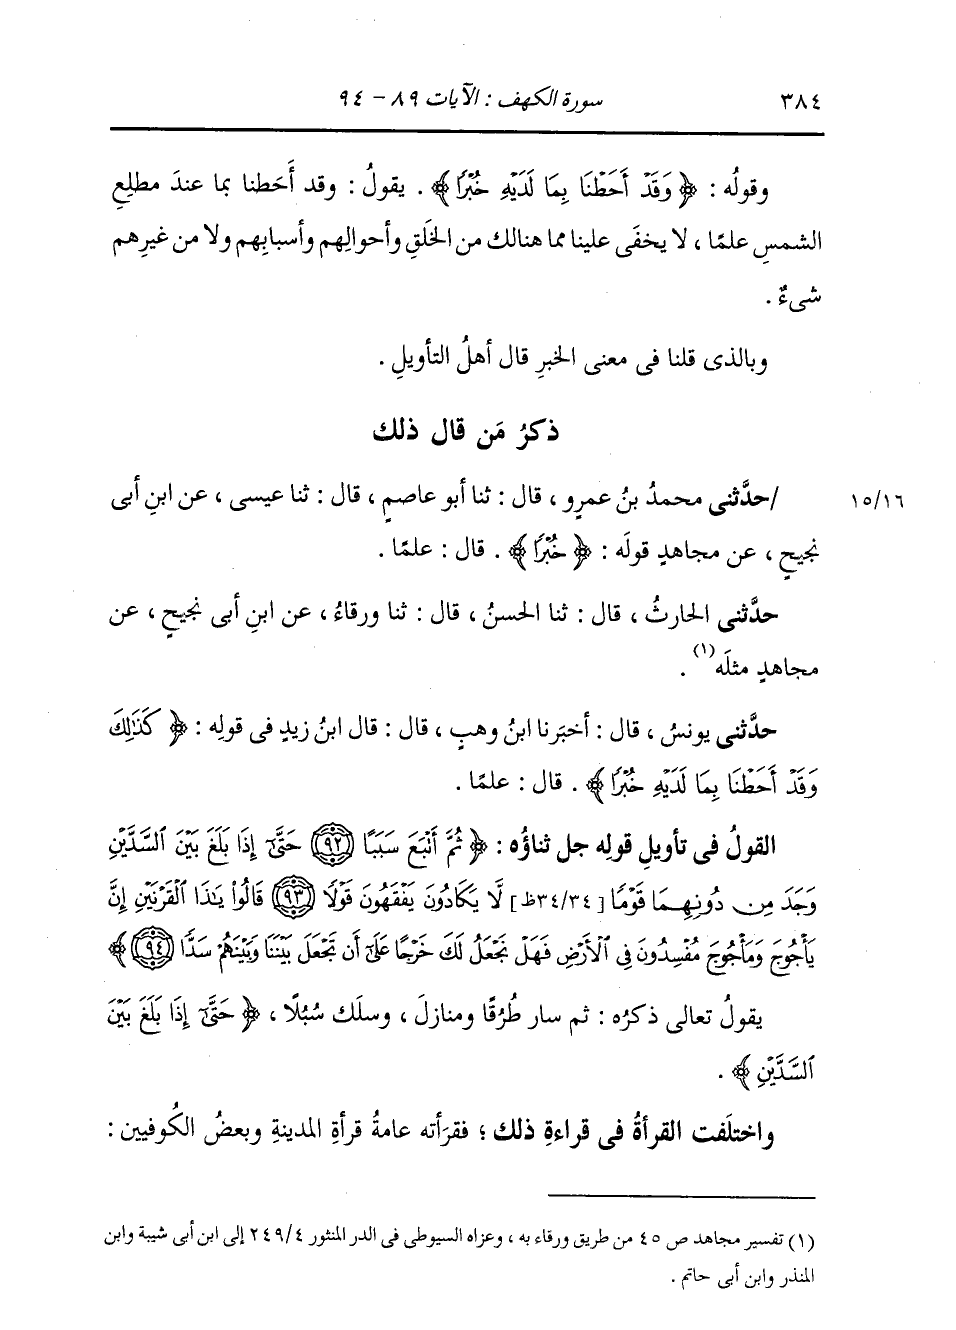 ٣٨٤ سورة الكهف : الآيات ٨٩ - ٩٤
وقولُه : ﴿ وَقَدْ أَحَطْنَا بِمَا لَدَيْهِ خُبْرًا ﴾ . يقولُ : وقد أَحَطنا بما عندَ مطلِعِ
الشمسِ علمًا ، لا يخفَى علينا مما هنالك من الخَلَقِ وأحوالِهم وأسبابِهم ولا من غيرِهم
شىءٌ .
وبالذى قلنا فى معنى الخبرِ قال أهلُ التأويلِ .
ذكرُ مَن قال ذلك
١٥/١٦ /حدَّثنى محمدُ بنُ عمرٍو ، قال : ثنا أبو عاصمٍ ، قال : ثنا عيسى ، عن ابنِ أبى
نجيحٍ ، عن مجاهدٍ قولَه : ﴿ خُبْرًا ﴾ . قال : علمًا .
حدَّثنى الحارثُ ، قال : ثنا الحسنُ ، قال : ثنا ورقاءُ ، عن ابنِ أبى نجيحٍ ، عن
مجاهدٍ مثلَه (١) .
حدَّثنى يونسُ ، قال : أخبَرنا ابنُ وهبٍ ، قال : قال ابنُ زيدٍ فى قولِه : ﴿ كَذَٰلِكَ
وَقَدْ أَحَطْنَا بِمَا لَدَيْهِ خُبْرًا ﴾ . قال : علمًا .
القولُ فى تأويلِ قولِه جل ثناؤُه : ﴿ ثُمَّ أَتْبَعَ سَبَبًا (٩٢) حَتَّىٰٓ إِذَا بَلَغَ بَيْنَ ٱلسَّدَّيْنِ
وَجَدَ مِن دُونِهِمَا قَوْمًا [٣٤/٣٤ظ] لَّا يَكَادُونَ يَفْقَهُونَ قَوْلًا (٩٣) قَالُوا۟ يَٰذَا ٱلْقَرْنَيْنِ إِنَّ
يَأْجُوجَ وَمَأْجُوجَ مُفْسِدُونَ فِى ٱلْأَرْضِ فَهَلْ نَجْعَلُ لَكَ خَرْجًا عَلَىٰٓ أَن تَجْعَلَ بَيْنَنَا وَبَيْنَهُمْ سَدًّا (٩٤) ﴾
يقولُ تعالى ذكرُه : ثم سار طُرُقًا ومنازلَ ، وسلَك سُبُلًا ، ﴿ حَتَّىٰٓ إِذَا بَلَغَ بَيْنَ
ٱلسَّدَّيْنِ ﴾ .
واختلَفت القرأةُ فى قراءةِ ذلك ؛ فقرَأته عامةُ قرأةِ المدينةِ وبعضُ الكُوفيين :
(١) تفسير مجاهد ص ٤٥ من طريق ورقاء به ، وعزاه السيوطى فى الدر المنثور ٢٤٩/٤ إلى ابن أبى شيبة وابن
المنذر وابن أبى حاتم .